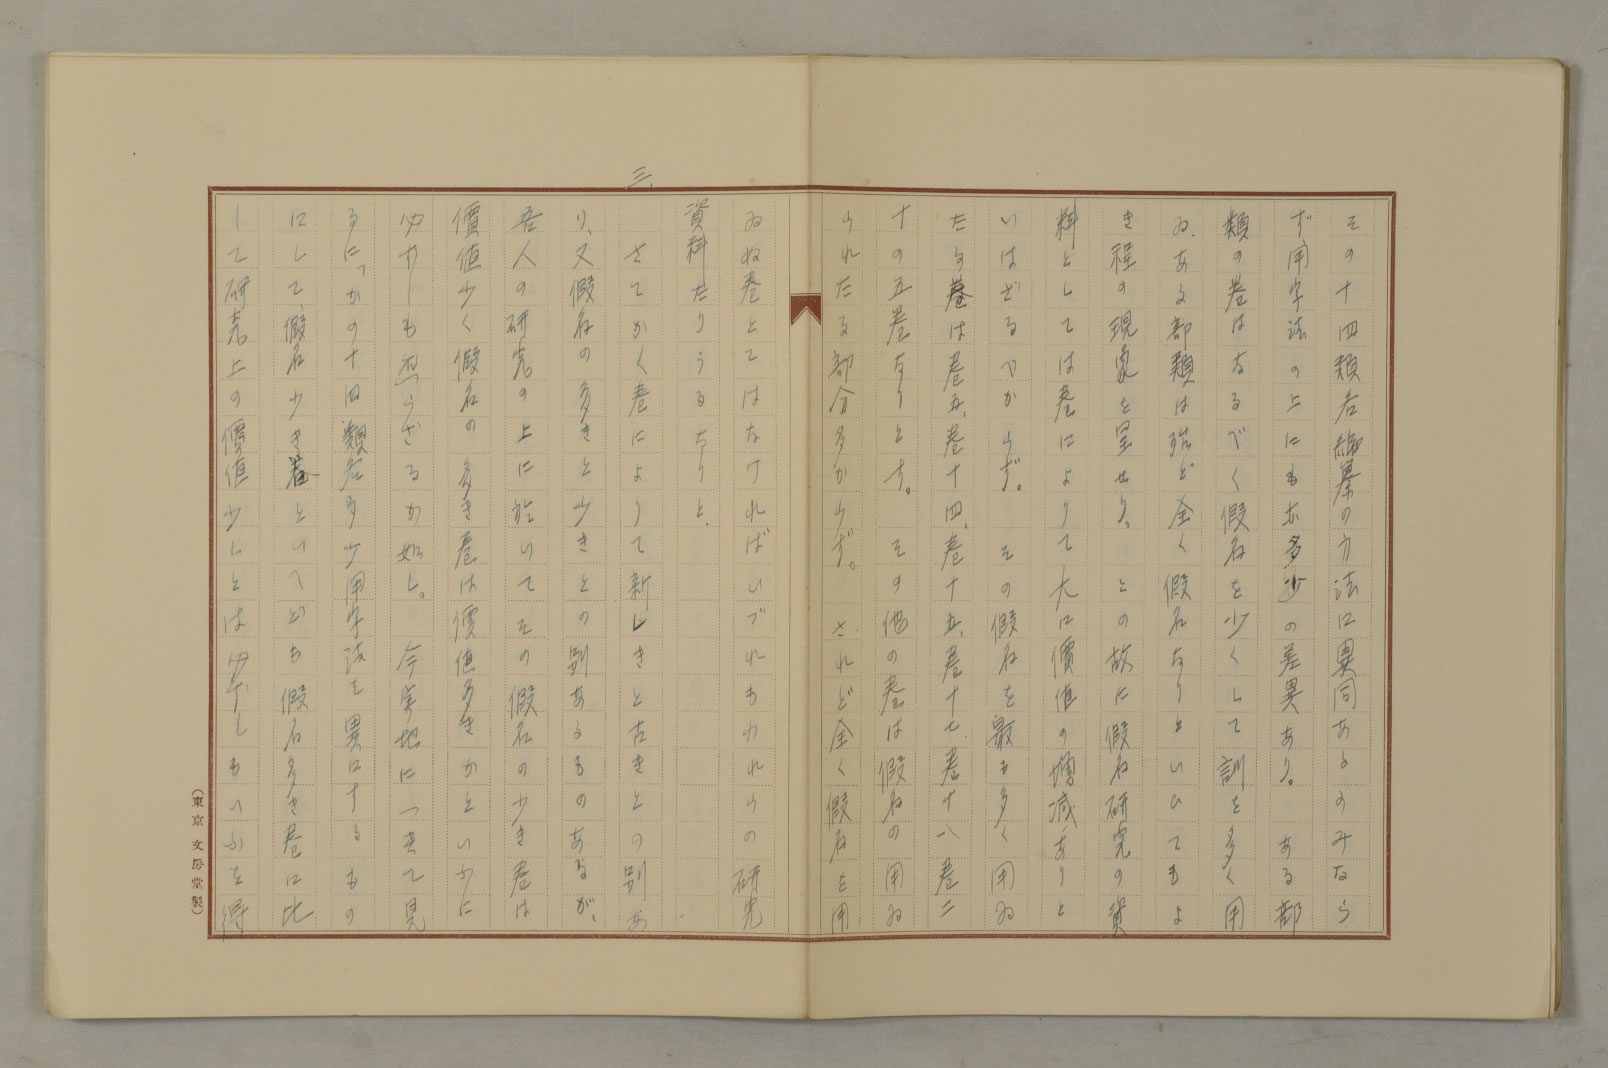 その十四類各編纂の方法に異同あるのみなら
ず用字法の上にも亦多少の差異あり。ある部
類の巻はなるべく假名を少くして訓を多く用
ゐ、ある部類は殆ど全く假名なりといひてもよ
き程の現象を呈せり、この故に假名研究の資
料としては巻によりて大に價値の増減ありと
いはざるべからず。その假名を最も多く用ゐ
たる巻は巻五、巻十四、巻十五、巻十七巻十八巻二
十の五巻なりとす。その他の巻は假名の用ゐ
られたる部分多からず。されど全く假名を用
ゐぬ巻とてはなければいづれもわれらの研究
資料たりうるなりと、
三、
さてかく巻によりて新しきと古きとの別あ
り、又假名の多きと少きとの別あるものあるが、
吾人の研究の上に於いてその假名の少き巻は
價値少く假名の多き巻は價値多きかといふに
必ずしも然らざるが如し。今実地につきて見
るに、かの十四類各多少用字法を異にするもの
にして、假名少き巻といへども假名多き巻に比
して研究上の價値少しとは必ずしもいふを得
(東京文房堂製)